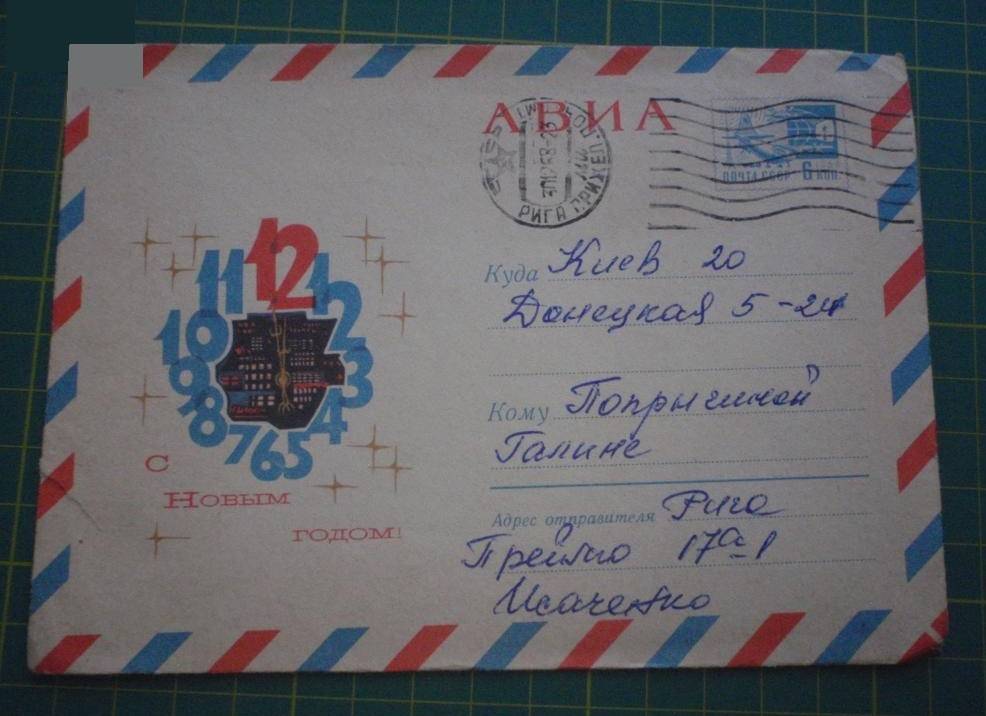 АВИА
РИГА
ПОЧТА СССР 6 КОП
11 12 1
10 2
9 3
8 4
7 6 5
С
Новым
годом!
Куда Киев 20
Донецкая 5-24
Кому
Галине
Адрес отправителя Рига
17а-1
Исаченко